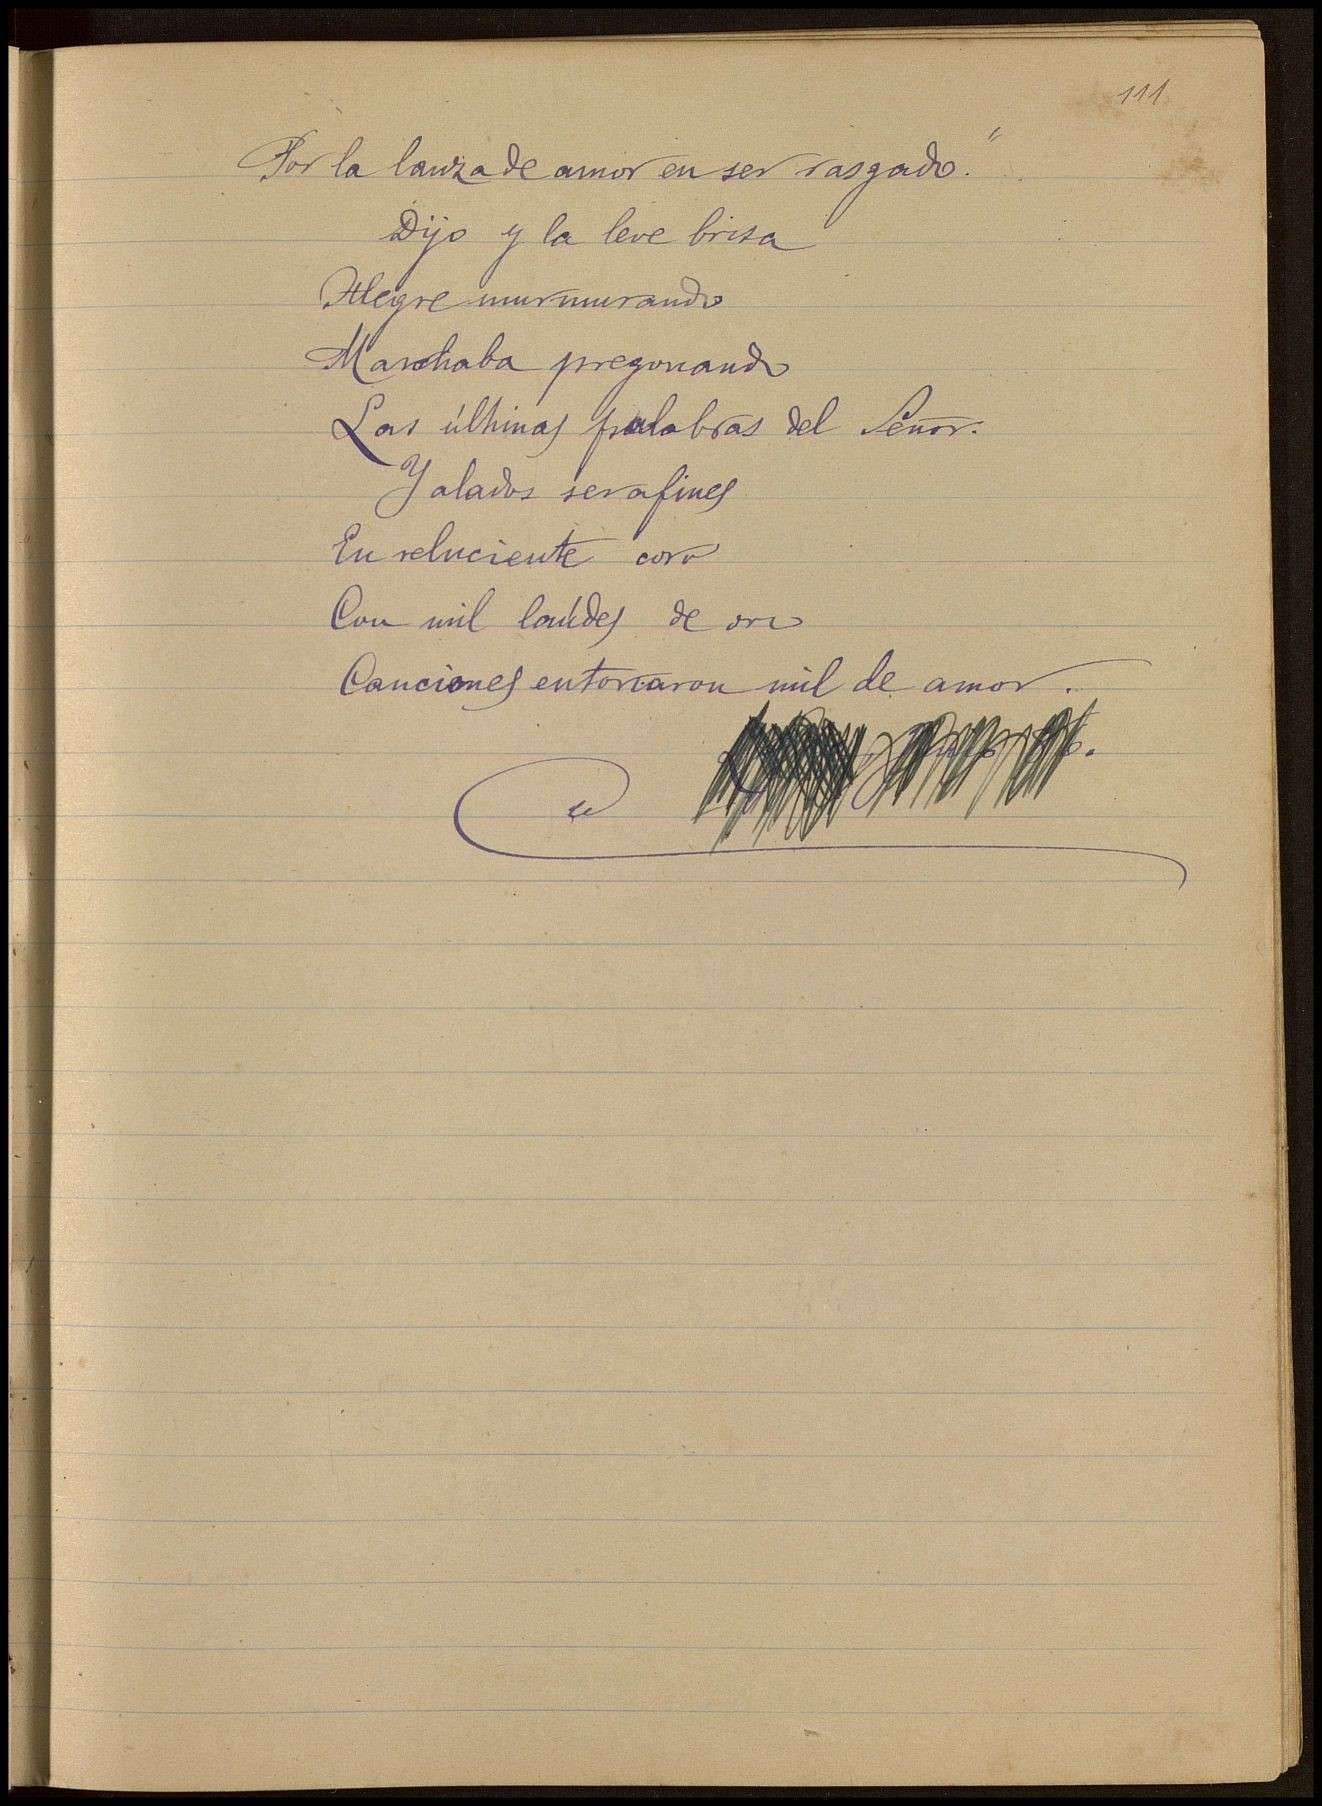 111
Por la lanza de amor en ser rasgado."
Dijo y la leve brisa
Alegre murmurando
Marchaba pregonando
Las últimas palabras del Señor.
Y alados serafines
En reluciente coro
Con mil laúdes de oro
Canciones entonaron mil de amor.